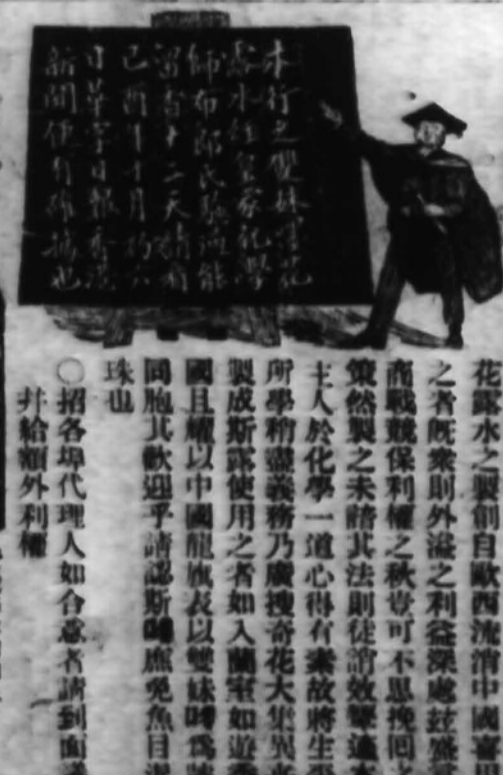 本行之雙妹嘜花
露水經皇家化學
師布郎氏驗過能
留香十二天請看
己酉年十月初六
日華字日報香港
新聞便有確據也
花露水之製創自歐西流消中國喜
之者既衆則外溢之利益深處茲
商戰競保利權之秋豈可不思挽回之
策然製之未諳其法則徒謂效顰
主人於化學一道心得有素故將生平
所學稍盡義務乃廣搜奇花大集異
製成斯露使用之者如入蘭室如遊
國且耀以中國龍旗表以雙妹嘜爲
同胞其歡迎乎請認斯嘜庶免魚目
珠也
○招各埠代理人如合意者請到面
并給額外利權